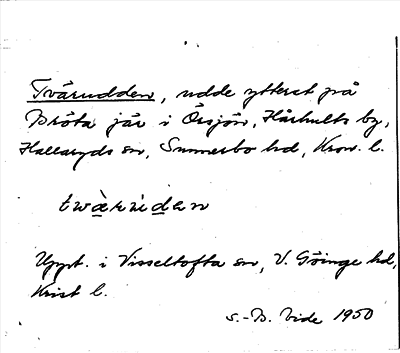 Tvärudden, udde ytterst på
Bröta jär i Örsjön, Hårhults by,
Hallaryds sn, Sunnerbo hd, Kron. l.
twäruden
Uppt. i Visseltofta sn, V. Göinge hd,
Krist l.
S.-B. Vide 1950